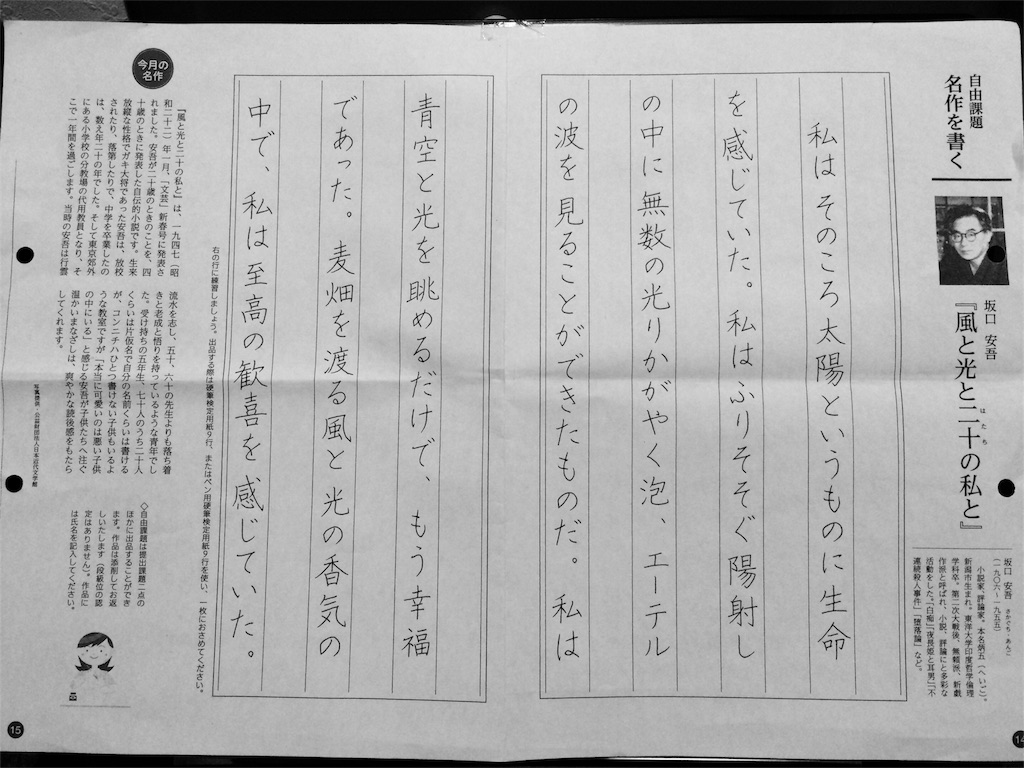 自由課題
名作を書く
坂口 安吾
『風と光と二十の私と』
はたち
坂口 安吾 さかぐち・あんご
(一九〇六〜一九五五)
小説家、評論家。本名炳五(へいご)。
新潟市生まれ。東洋大学印度哲学倫理
学科卒。第二次大戦後、無頼派、新戯
作派と呼ばれ、小説、評論にと多彩な
活動をした。「白痴」「夜長姫と耳男」「不
連続殺人事件」「堕落論」など。
私は そのころ太陽というものに生命
を感じていた。私はふりそそぐ陽射し
の中に無数の光りかがやく泡、エーテル
の波を見ることができたものだ。私は
青空と光を眺めるだけで、もう幸福
であった。麦畑を渡る風と光の香気の
中で、私は至高の歓喜を感じていた。
右の行に練習しましょう。出品する際は硬筆検定用紙9行、またはペン用硬筆検定用紙9行を使い、一枚におさめてください。
今月の
名作
『風と光と二十の私と』は、一九四七(昭
和二十二)年一月、「文芸」新春号に発表さ
れました。安吾が二十歳のときのことを、四
十歳のときに発表した自伝的小説です。生来
放縦な性格でガキ大将であった安吾は、放校
されたり、落第したりで、中学を卒業したの
は、数え年二十の年でした。そして東京郊外
にある小学校の分教場の代用教員となり、そ
こで一年間を過ごします。当時の安吾は行雲
流水を志し、五十、六十の先生よりも落ち着
きと老成と悟りを持っているような青年でし
た。受け持ちの五年生、七十人のうち二十人
くらいは片仮名で自分の名前くらいは書ける
が、コンニチハひとつ書けない子供もいるよ
うな教室ですが「本当に可愛いのは悪い子供
の中にいる」と感じる安吾が子供たちへ注ぐ
温かいまなざしは、爽やかな読後感をもたら
してくれます。
写真提供・公益財団法人日本近代文学館
◇自由課題は提出課題二点の
ほかに出品することができ
ます。作品は添削してお返
しいたします(段級位の認
定はありません)。作品に
は氏名を記入してください。
15
14